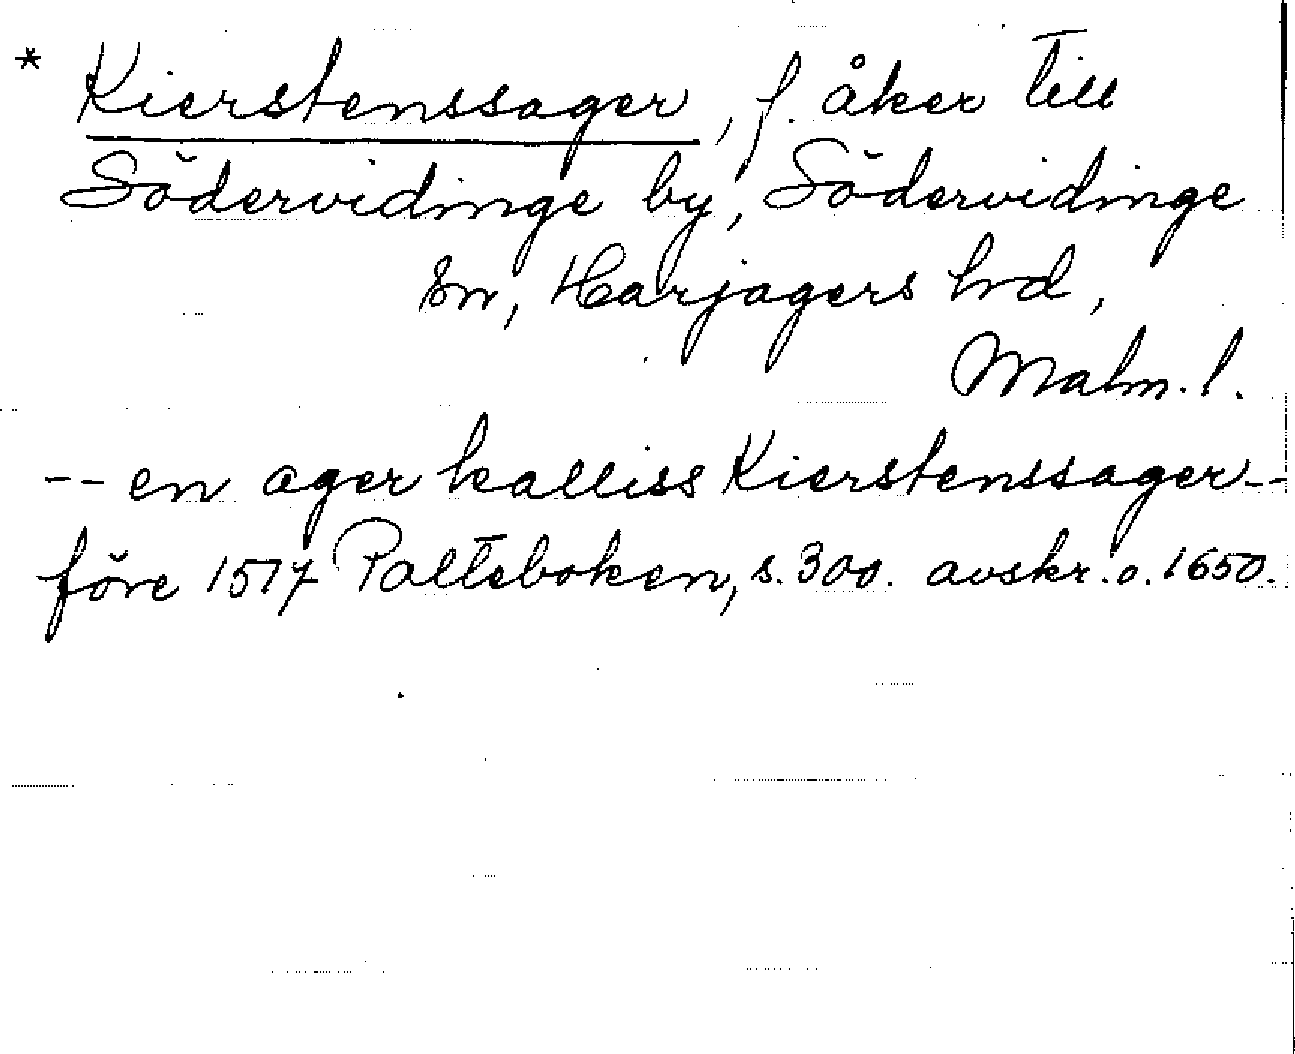 * Kierstenssager, f. åker till
Södervidinge by, Södervidinge
sn, Harjagers hd,
Malm. l.
-- en ager kalliss Kierstenssager --
före 1517 Palteboken, s. 300. avskr. o. 1650.